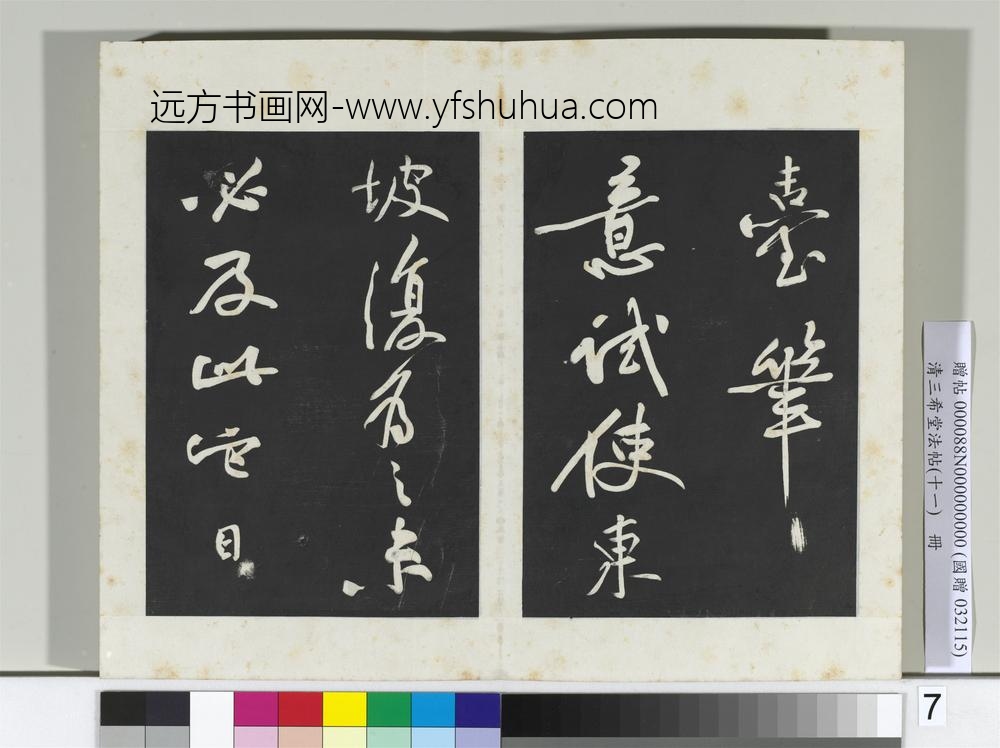 远方书画网-www.yfshuhua.com
臺筆
意試使東
坡復為之未
必及此它日
贈帖 000088N000000000 (國贈 032115)
清三希堂法帖(十一) 冊
7